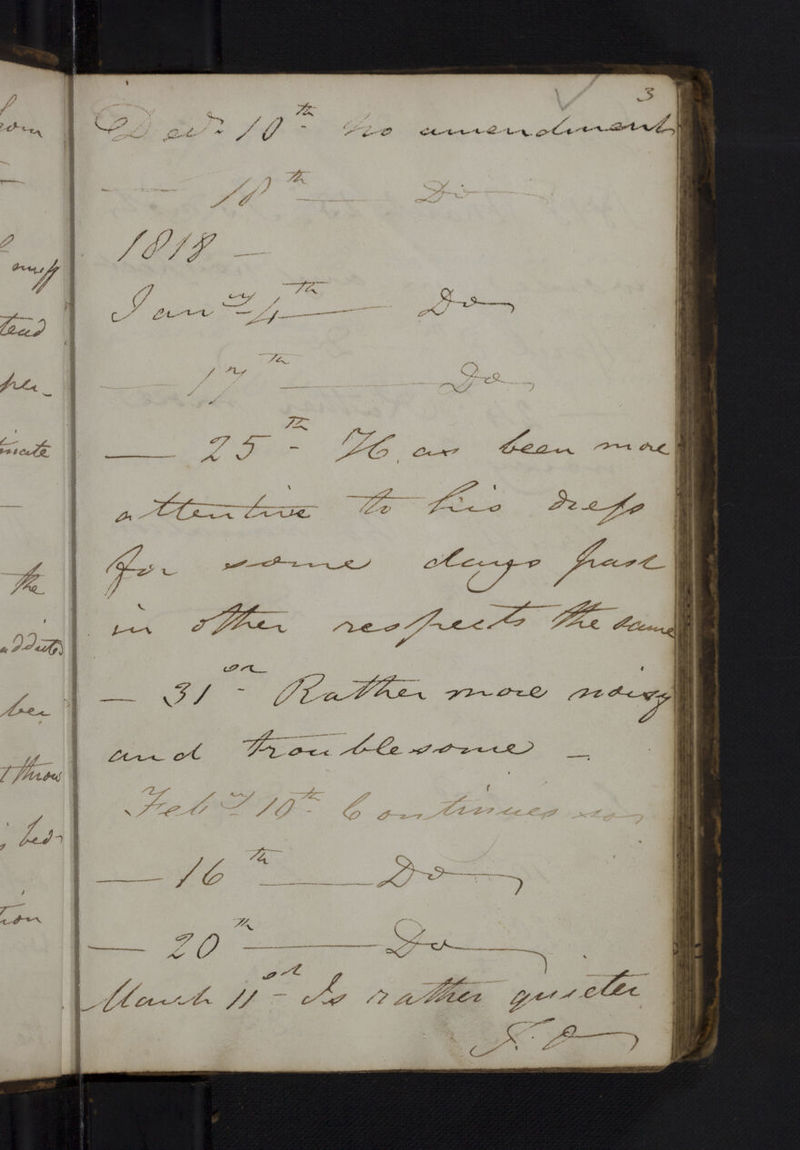 3
Decr. 10th. No amendment
— 18th — Do
1818 —
Jany 4th — Do
— 17th — Do
— 25th. Has been more
attentive to his dress
for some days past
in other respects the same
— 31st. Rather more noisy
and troublesome —
Feby 10th. Continues so
— 16th — Do
— 20th — Do
March 11st Is rather quieter
T. O
tead
per-
the
ber
throw
bed